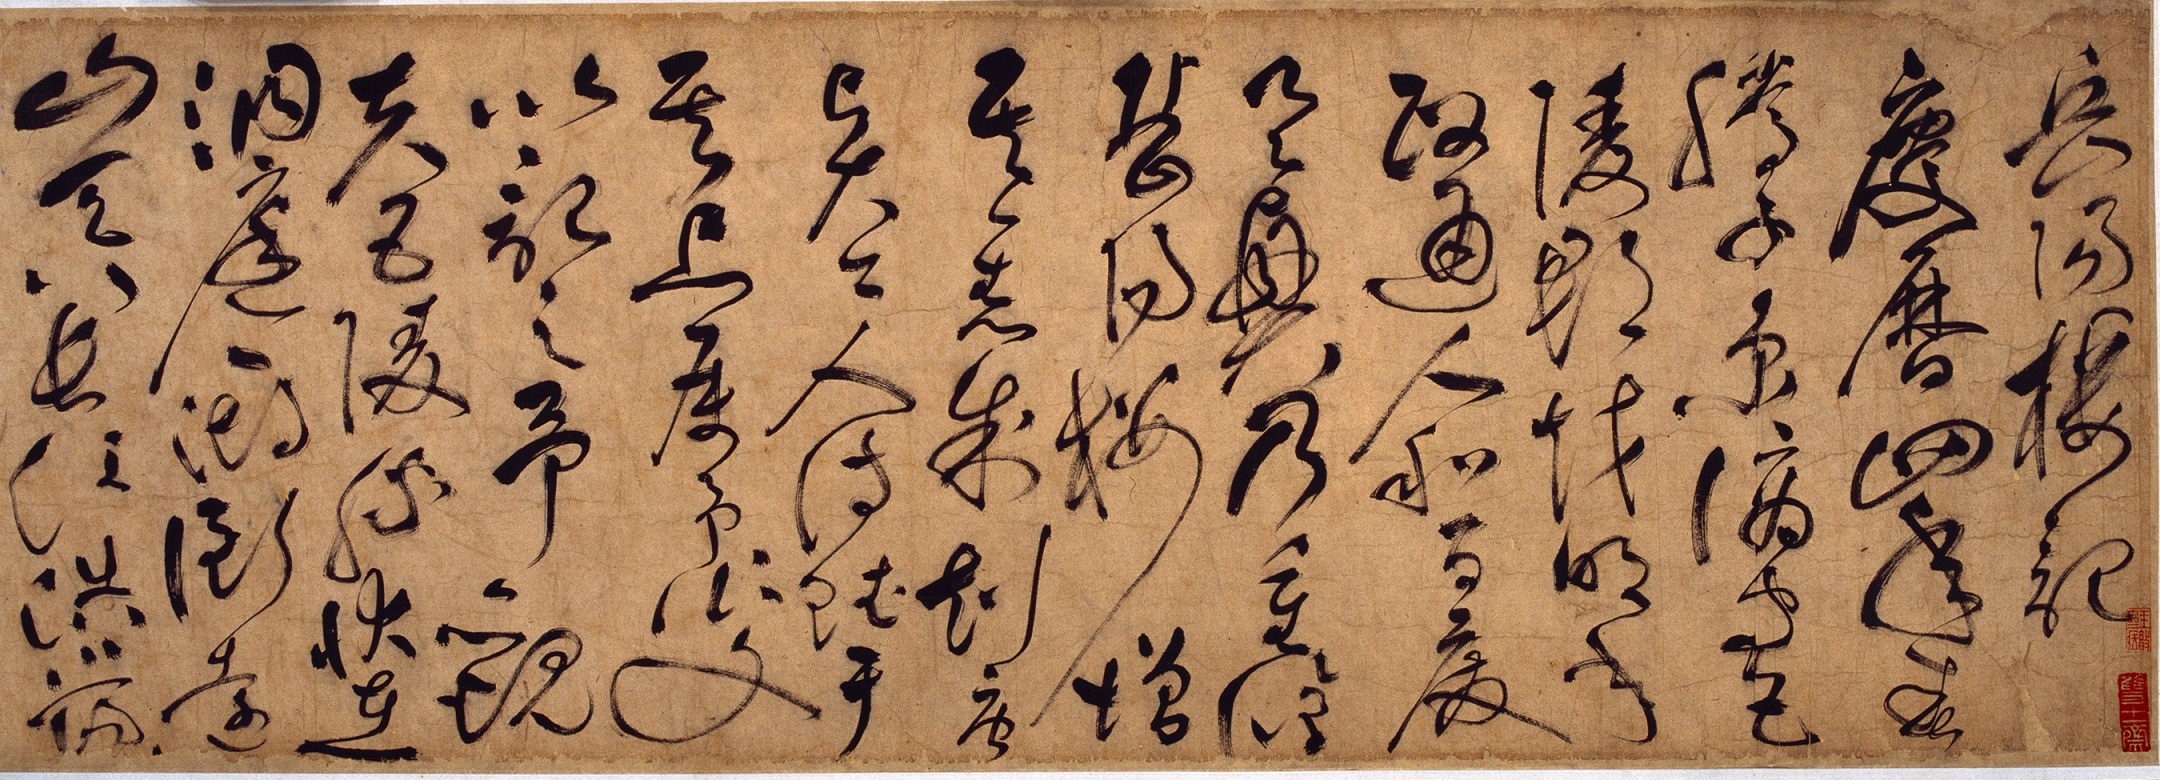 岳陽樓記
慶曆四年春
滕子京謫守巴
陵郡越明年
政通人和百廢
具興乃重脩
岳陽樓增
其舊制刻唐
賢今人詩賦于
其上屬予作文
以記之予觀
夫巴陵勝狀在
洞庭一湖銜遠
山吞長江浩浩湯